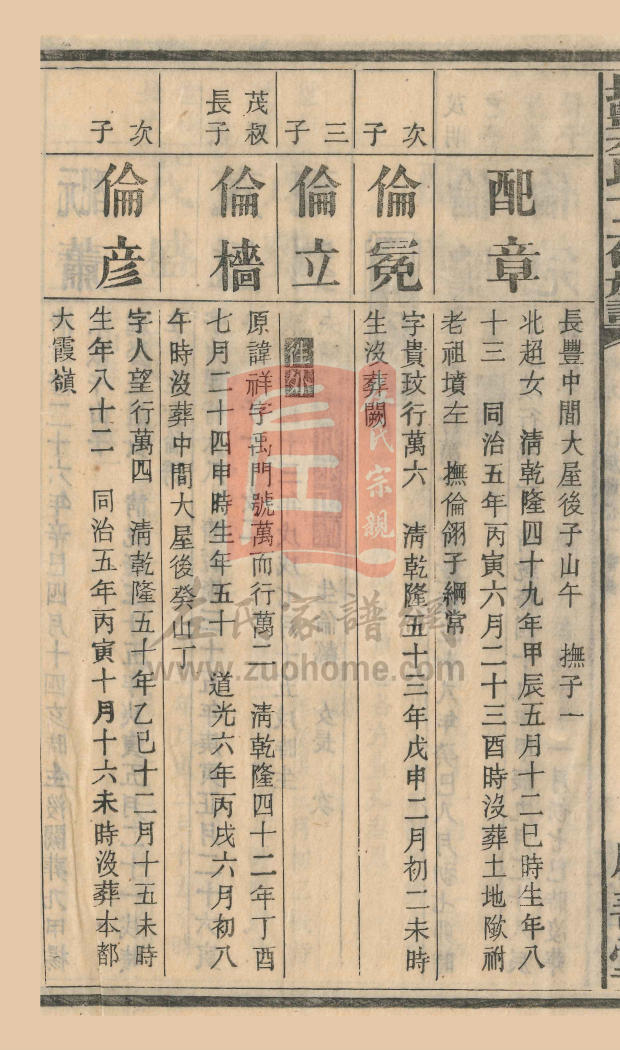 配章
長豐中間大屋後子山午　撫子一
北超女　清乾隆四十九年甲辰五月十二巳時生年八
十三　同治五年丙寅六月二十三酉時沒葬土地歟祔
老祖墳左　撫倫翎子綱常
次子
倫冕
字貴玟行萬六　清乾隆五十三年戊申二月初二未時
生沒葬闕
三子
倫立
生沒
茂叔長子
倫檣
原諱祥字禹門號萬而行萬二　清乾隆四十二年丁酉
七月二十四申時生年五十　道光六年丙戌六月初八
午時沒葬中間大屋後癸山丁
次子
倫彦
字人望行萬四　清乾隆五十年乙巳十二月十五未時
生年八十二　同治五年丙寅十月十六未時沒葬本都
大霞嶺
左氏宗親
左氏家譜網
www.zuohome.com